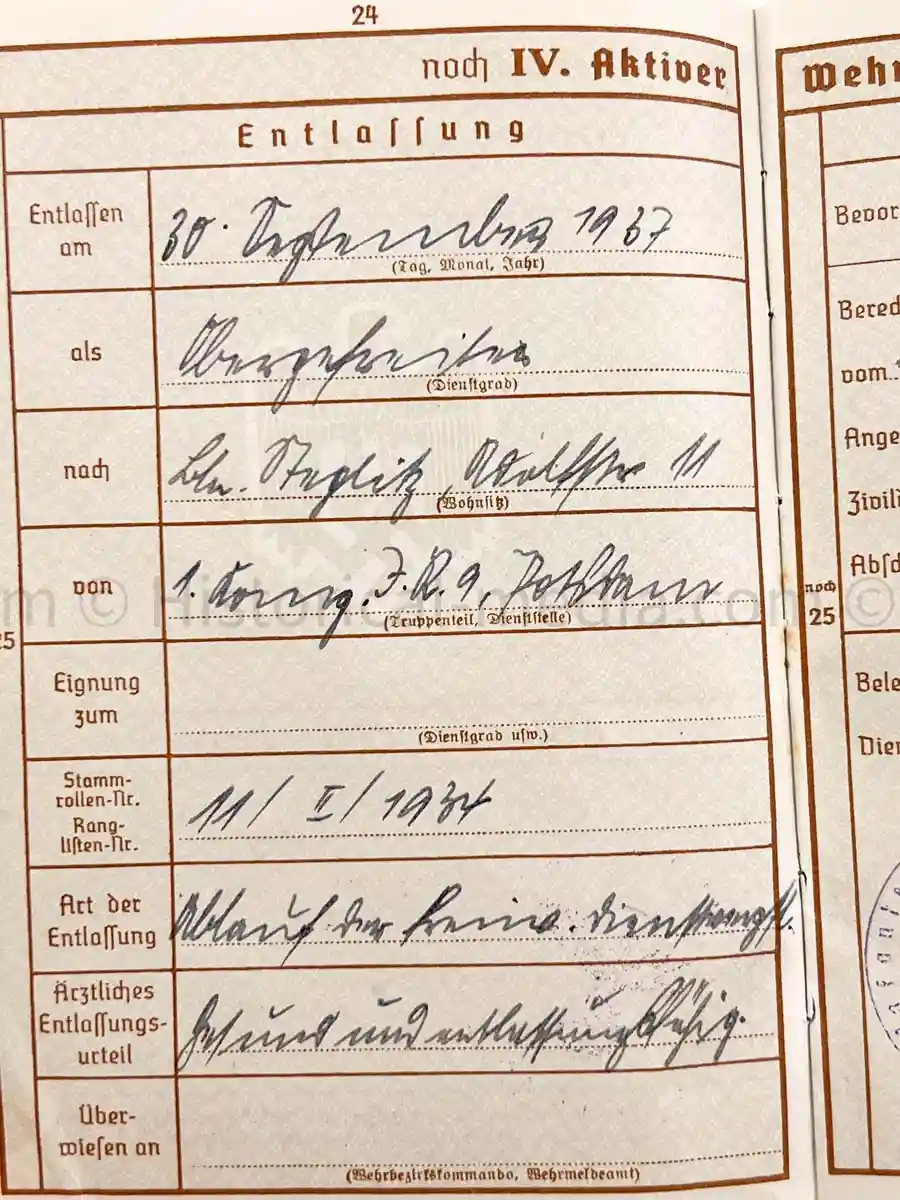 24
noch IV. Aktiver
Entlassung
Entlassen am
30. September 1937
(Tag, Monat, Jahr)
als
Obergefreiter
(Dienstgrad)
nach
Bln. Steglitz, Wolffstr 11
(Wohnsitz)
von
1. Komp. J.R. 9, Potsdam
(Truppenteil, Dienststelle)
Eignung zum
(Dienstgrad usw.)
Stamm-
rollen-Nr.
Rang-
listen-Nr.
11/ II/ 1934
Art der
Entlassung
Ablauf der freiw. Dienstverpfl.
Ärztliches
Entlassungs-
urteil
Gesund und entlassungsfähig.
Über-
wiesen an
(Wehrbezirkskommando, Wehrmeldeamt)
25
Wehr
Bevor
Bered
vom
Ange
Zivili
Absch
noch
25
Bele
Dien
m © Historical-media.com ©